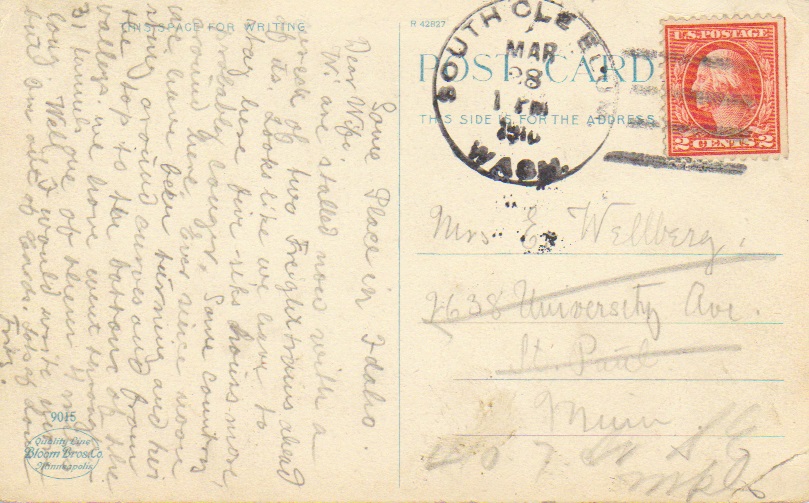 THIS SPACE FOR WRITING
R 42827
POST CARD
THIS SIDE IS FOR THE ADDRESS
SOUTH CLE ELUM
MAR
28
1 PM
1916
WASH.
U.S. POSTAGE
2 CENTS 2
Some Place in Idaho.
Dear Wife
We are stalled now with a
wreck of two Freight trains ahead
of us. Looks like we have to
stay here five six hours more,
probably longer. Some country
around here. Ever since noon
we have been turning and
going around curves and from
the top to the bottom of the
valleys. we have went through
31 tunnels one of them 4 miles
long. Well I would write
but am out of cards. lots of love
Fritz.
Mrs E. Wellberg.
2638 University Ave.
St. Paul
Minn
9015
Quality Line
Bloom Bros. Co.
Minneapolis